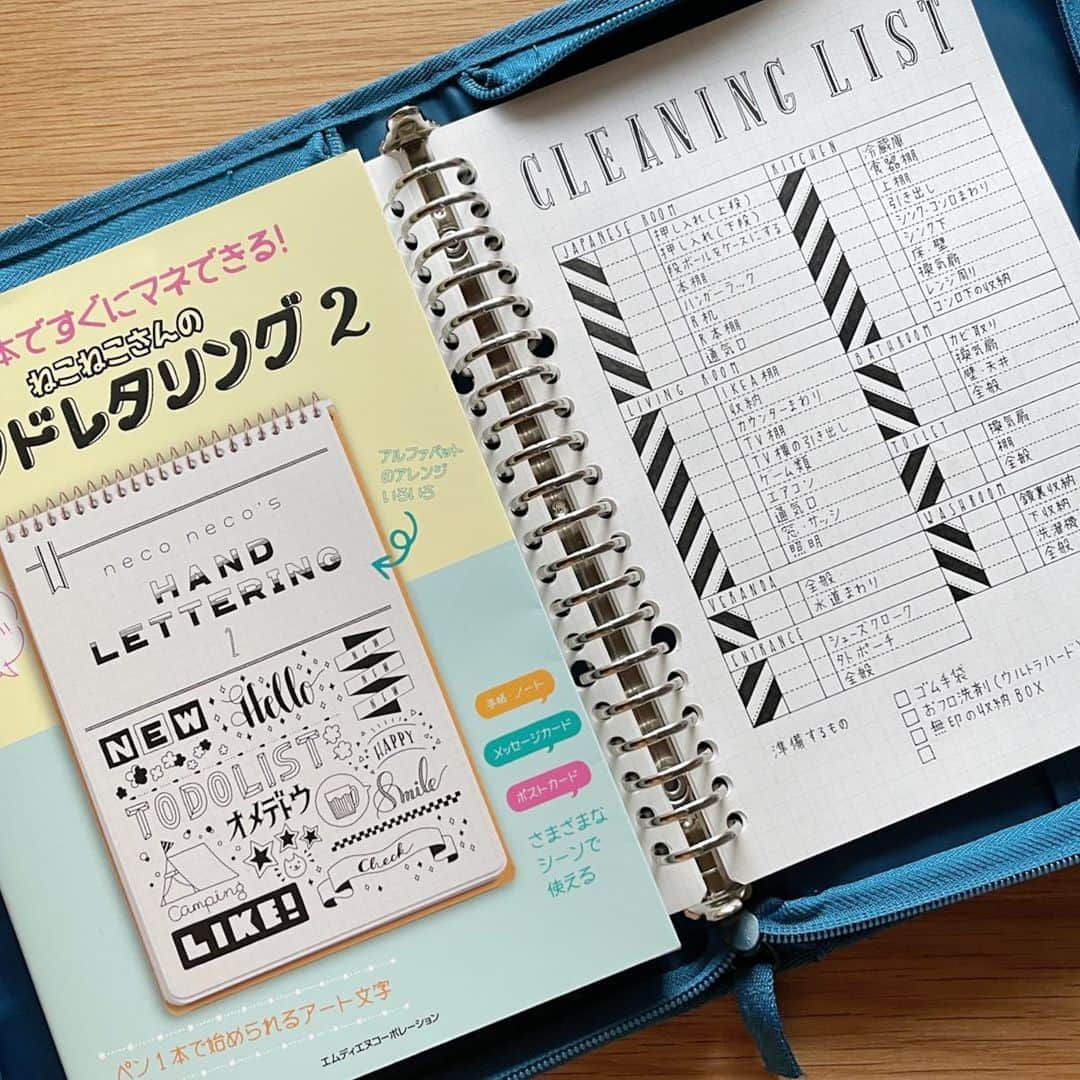 本ですぐにマネできる!
ねこねこさんの
ンドレタリング 2
アルファベット
のアレンジ
いろいろ
neco neco's
HAND
LETTERING
2
NEW
Hello
NEW
NEW
NEW
TODOLIST
HAPPY
オメデトウ
Smile
Camping
Check
LIKE!
手帳・ノート
メッセージカード
ポストカード
さまざまな
シーンで
使える
ペン1本で始められるアート文字
エムディエヌコーポレーション
CLEANING LIST
JAPANESE ROOM
押し入れ(上段)
押し入れ(下段)
段ボールをケースにする
本棚
ハンガーラック
R机
R本棚
通気口
LIVING ROOM
IKEA棚
収納
カウンターまわり
TV棚
TV横の引き出し
ゲーム類
エアコン
通気口
窓・サッシ
照明
VERANDA
全般
水道まわり
ENTRANCE
シューズクローク
外ポーチ
全般
KITCHEN
冷蔵庫
食器棚
上棚
引き出し
シンク・コンロまわり
シンク下
床・壁
換気扇
レンジ周り
コンロ下の収納
BATHROOM
カビ取り
換気扇
壁・天井
全般
TOILET
換気扇
棚
全般
WASHROOM
鏡裏収納
下収納
洗濯機
全般
準備するもの
ゴム手袋
おフロ洗剤(ウルトラハード
無印の収納BOX